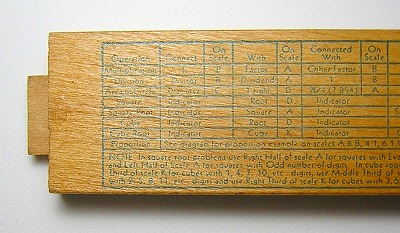 Operation Connect On Scale With On Scale Connected With On Scale
Multiplication 1 B Factor A Other Factor B
Division Divisor B Dividend A 1 B
Area of Circle C D X/4 (.7854) A
Square Indicator Root D Indicator
Square Root Indicator Square A Indicator
Cube Indicator Root D Indicator
Cube Root Indicator Cube K Indicator
Proportion See diagram for proportion example on scales A & B,
NOTE In square root problems use Right Half of scale A for squares with Even
and Left Half of Scale A for squares with Odd number of digits. In cube
Third of scale K for cubes with 1, 4, 7, 10, etc. digits, use Middle Third of
with 2, 5, 8, 11, etc., digits and use Right Third of scale K with 3, 6,